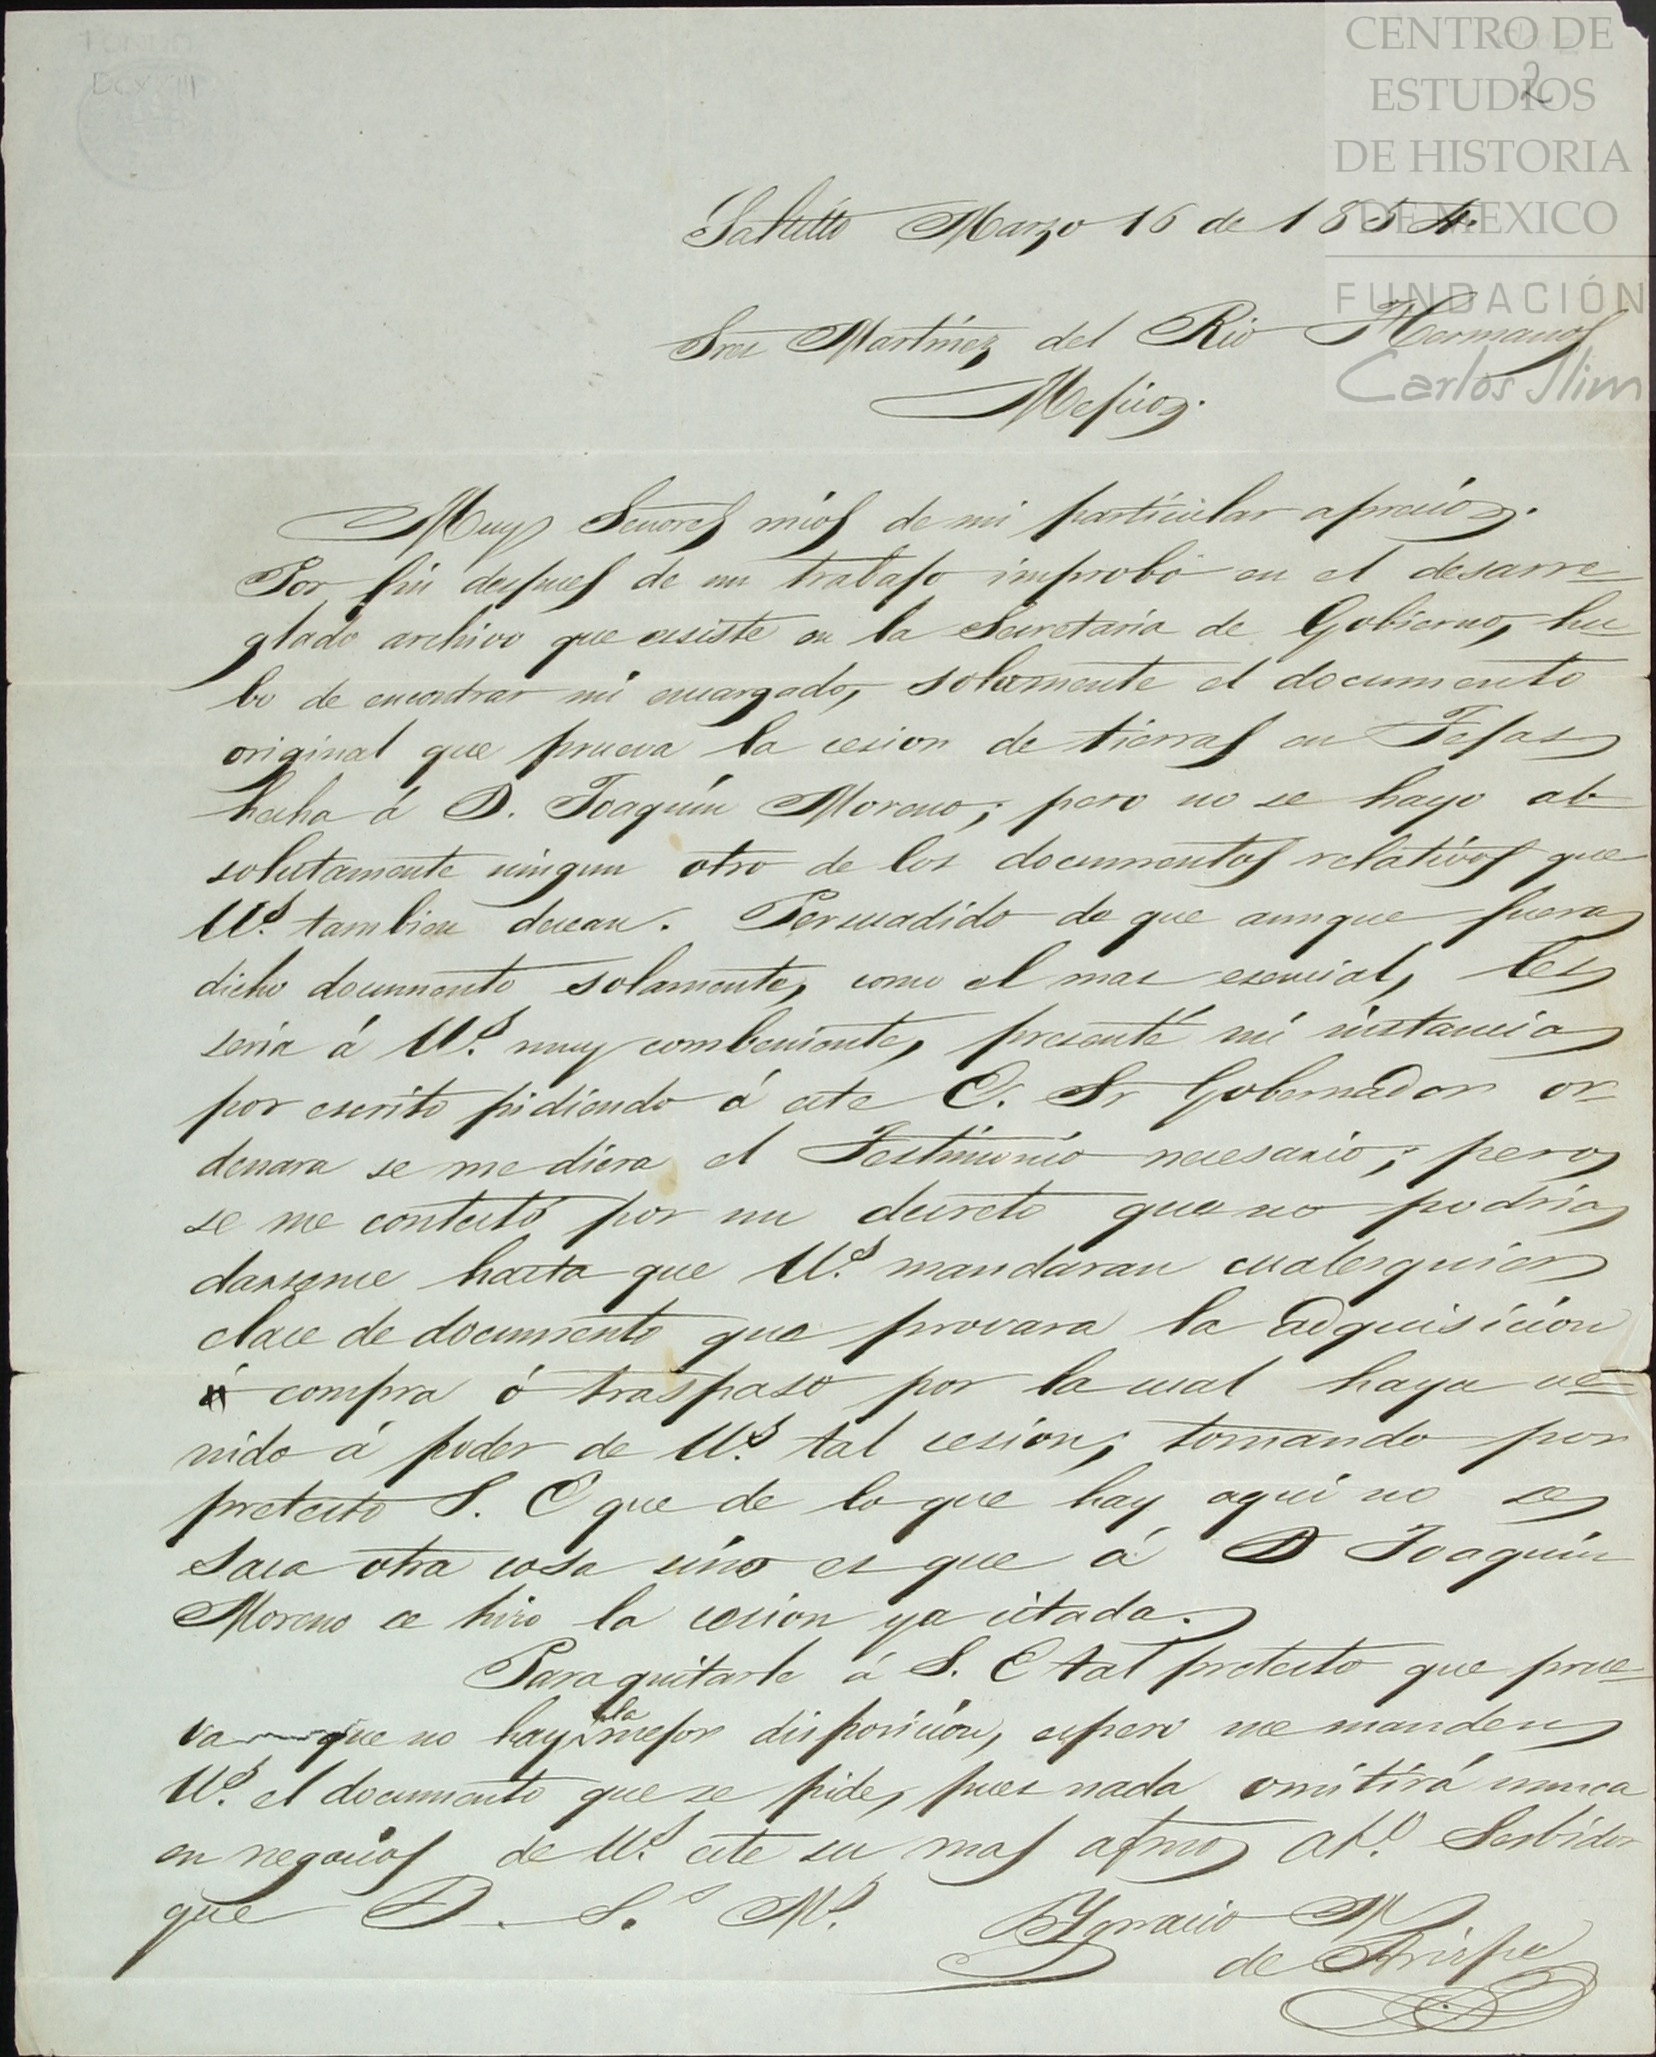 FONDO
DCXXIII
2
CENTRO DE
ESTUDIOS
DE HISTORIA
DE MEXICO
FUNDACIÓN
Carlos Slim
Saltillo Marzo 16 de 1854.
Sres Martínez del Rio Hermanos
Mejico.
Muy Señores mios de mi particular aprecio.
Por fin despues de un trabajo improbo en el desarre-
glado archivo que ecsiste en la Secretaria de Gobierno, hu-
bo de encontrar mi encargado, solamente el documento
original que prueva la cesion de tierras en Tejas
hecha á D. Joaquin Moreno; pero no se hayo ab-
solutamente ningun otro de los documentos relativos que
Us. tambien decean. Persuadido de que aunque fuera
dicho documento solamente, como el mas esencial, les
seria á Us. muy combeniente, presenté mi instancia
por escrito pidiendo á este E. Sr Gobernador or-
denara se me diera el Testimonio necesario; pero
se me contestó por un decreto que no podria
darseme hasta que Us. mandaran cualesquier
clace de documento que provara la adquisicion
ó compra ó traspaso por la cual haya ve-
nido á poder de Us. tal cesion; tomando por
pretesto S. E que de lo que hay aqui no se
saca otra cosa sino es que á D Joaquin
Moreno se hizo la cesion ya citada.
Para quitarle á S. E tal pretesto que prue-
va que no hay la mejor disposicion, espero me manden
Us. el documento que se pide, pues nada omitirá nunca
en negocios de Us. este su mas afmo at.o Serbidor
que B. S. Ms.
Ygnacio M
de Arispe